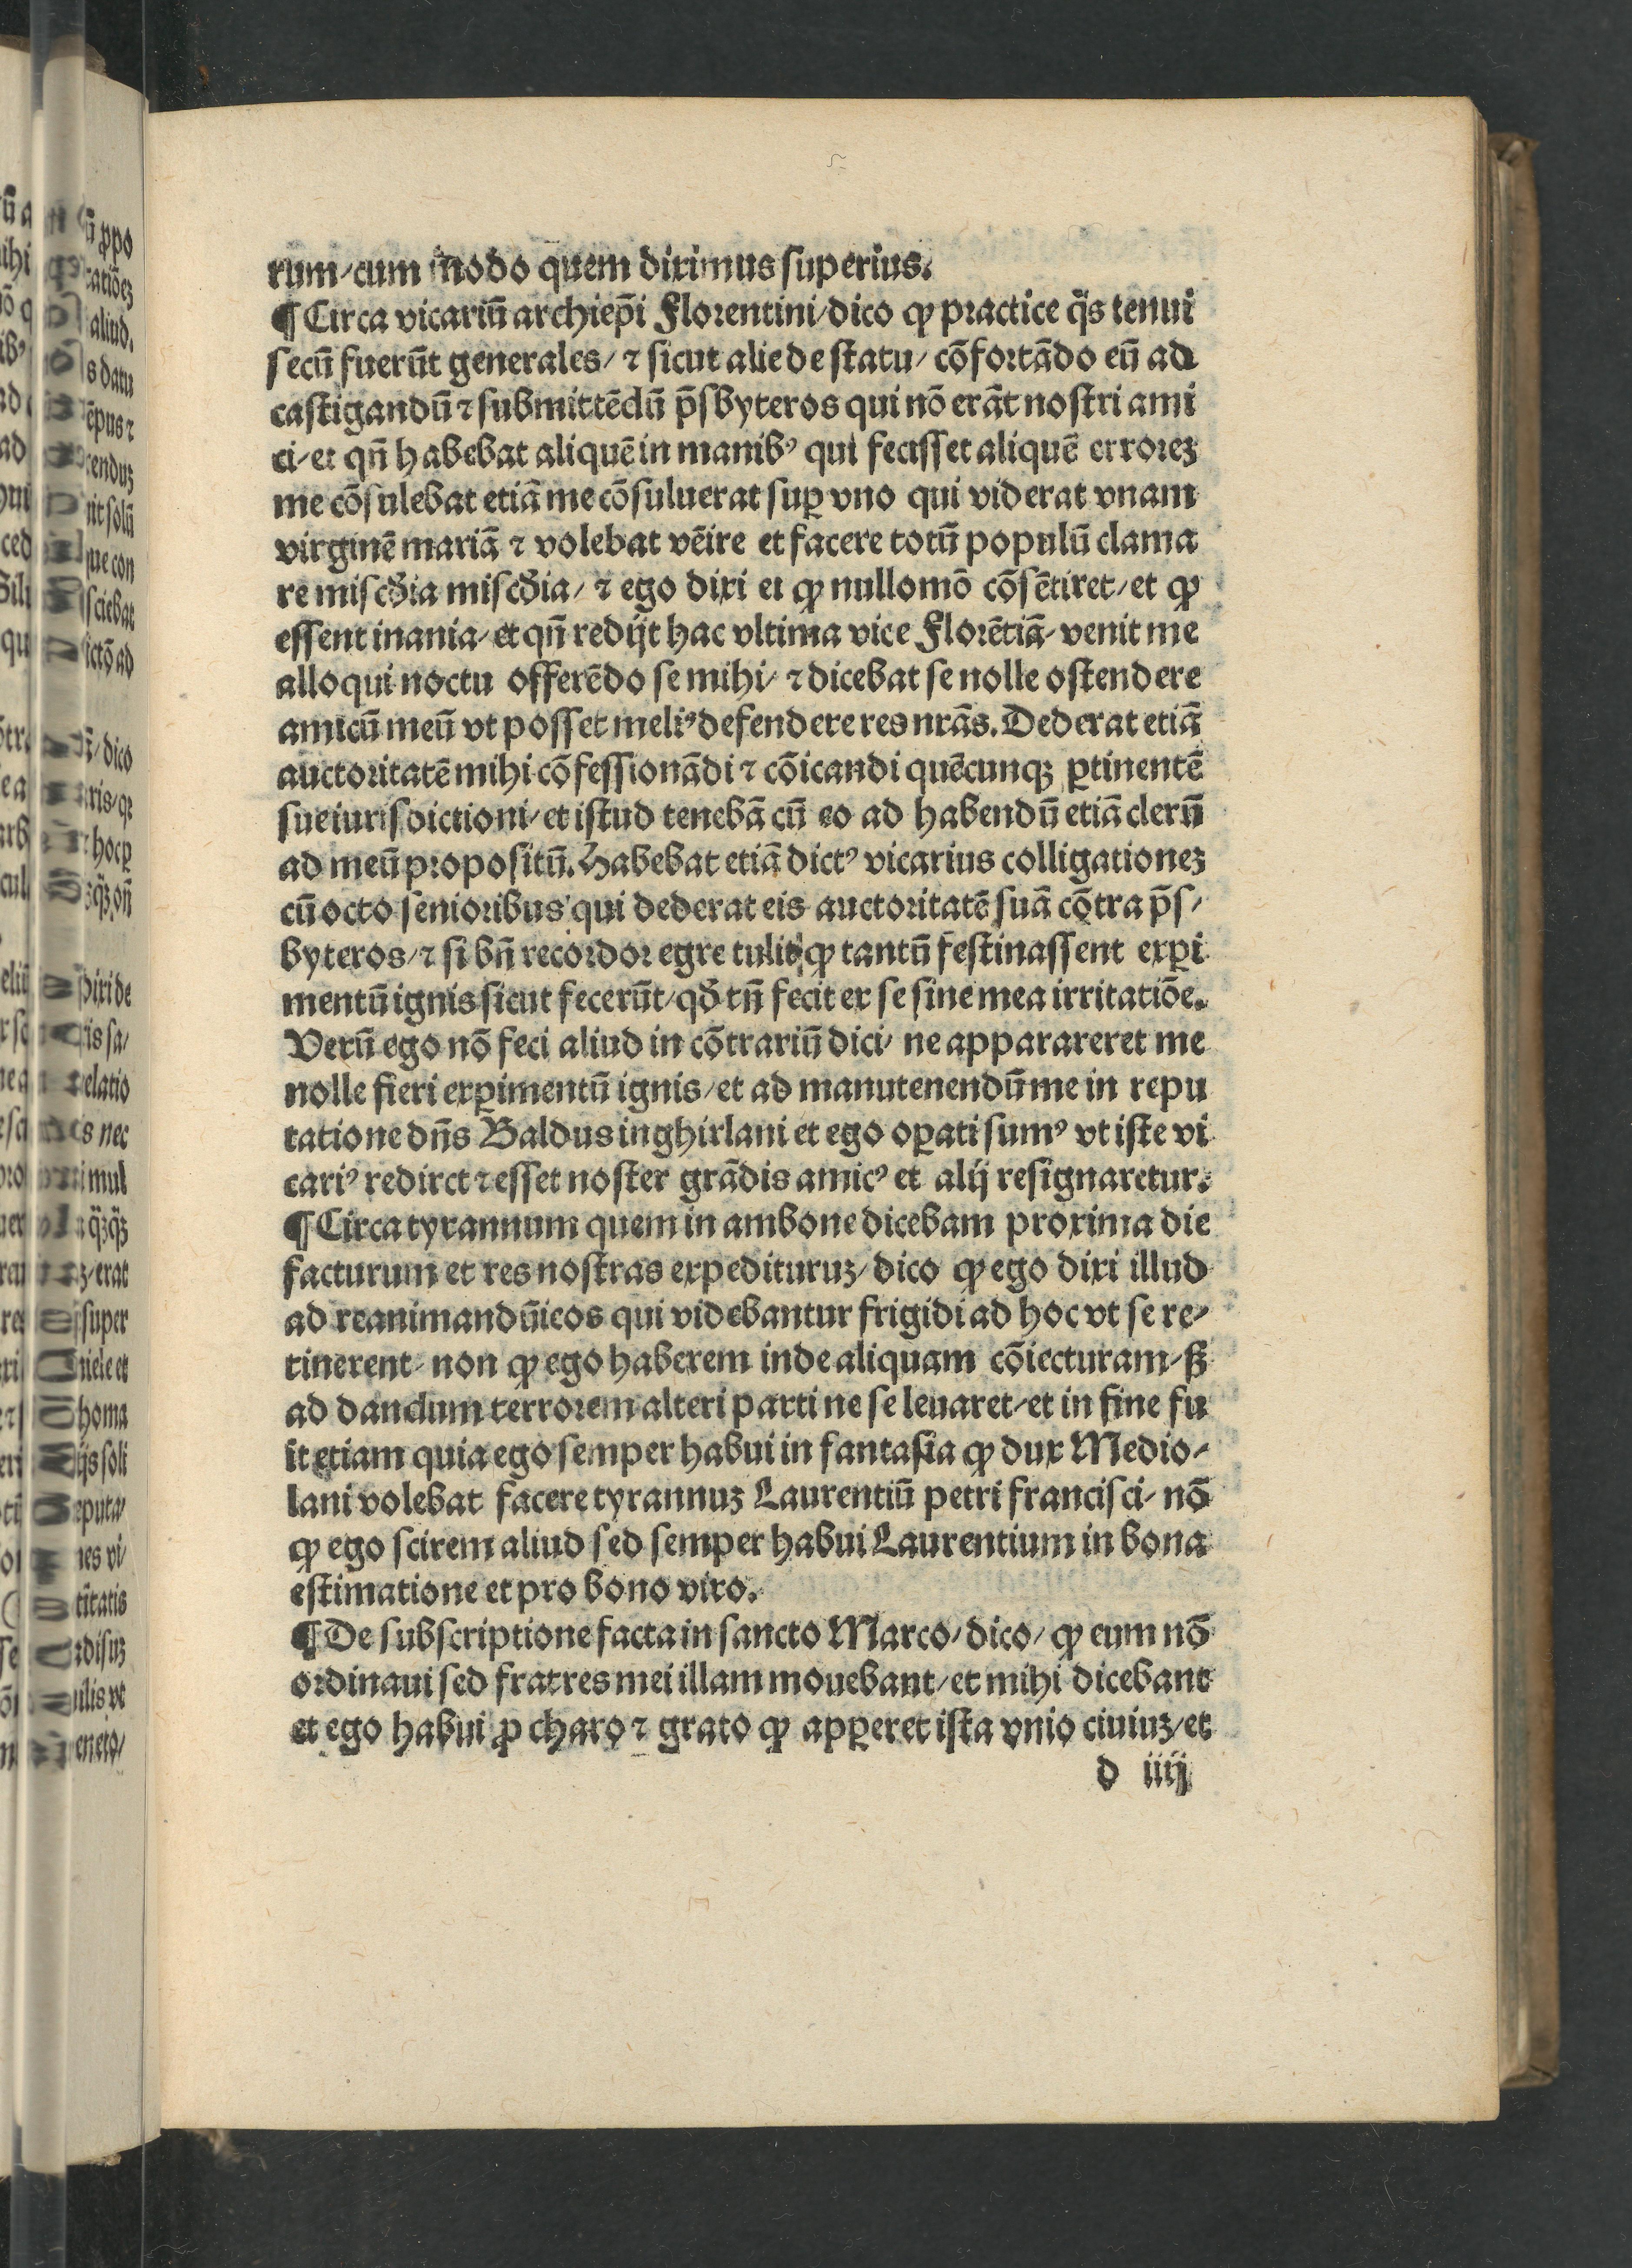 rum/cum modo quem diximus superius.
¶Circa vicariū archiep̄i Florentini/dico ꝙ practice q̄s tenui
secū fuerūt generales/ ⁊ sicut alie de statu/ cōfortādo eū ad
castigandū ⁊ submittēdū p̄sbyteros qui nō erāt nostri ami
ci/et qn̄ habebat aliquē in manibꝰ qui fecisset aliquē errorez
me cōsulebat etiā me cōsuluerat suꝑ vno qui viderat vnam
virginē mariā ⁊ volebat vēire et facere totū populū clama
re misc̄dia misc̄dia/ ⁊ ego dixi ei ꝙ nullomō cōsētiret/et ꝙ
essent inania/et qn̄ redijt hac vltima vice Florētiā/venit me
alloqui noctu offerēdo se mihi/ ⁊ dicebat se nolle ostendere
amicū meū vt posset meliꝰ defendere res nrās. Dederat etiā
auctoritatē mihi cōfessionādi ⁊ cōicandi quēcunqꝫ ꝑtinentē
sue iurisdictioni/et istud tenebā cū eo ad habendū etiā clerū
ad meū propositū. Habebat etiā dictꝰ vicarius colligationez
cū octo senioribus qui dederat eis auctoritatē suā cōtra p̄s/
byteros/⁊ si bn̄ recordor egre tulit ꝙ tantū festinassent exꝑi
mentū ignis sicut fecerūt/qd̄ tn̄ fecit ex se sine mea irritatiōe.
Verū ego nō feci aliud in cōtrariū dici/ ne apparareret me
nolle fieri exꝑimentū ignis/et ad manutenendū me in repu
tatione dn̄s Baldus inghirlani et ego oꝑati sumꝰ vt iste vi
cariꝰ rediret ⁊ esset noster grādis amicꝰ et alij resignaretur.
¶Circa tyrannum quem in ambone dicebam proxima die
facturum et res nostras expedituruz/dico ꝙ ego dixi illud
ad reanimandū icos qui videbantur frigidi ad hoc vt se re/
tinerent/non ꝙ ego haberem inde aliquam cōiecturam/sꝫ
ad dandum terrorem alteri parti ne se leuaret/et in fine fu
it etiam quia ego semper habui in fantasia ꝙ dux Medio/
lani volebat facere tyrannuz Laurentiū petri francisci/nō
ꝙ ego scirem aliud sed semper habui Laurentium in bona
estimatione et pro bono viro.
¶De subscriptione facta in sancto Marco/dico/ ꝙ eum nō
ordinaui sed fratres mei illam mouebant/et mihi dicebant
et ego habui ꝓ charo ⁊ grato ꝙ apꝑeret ista vnio ciuiuz/et
d iiij